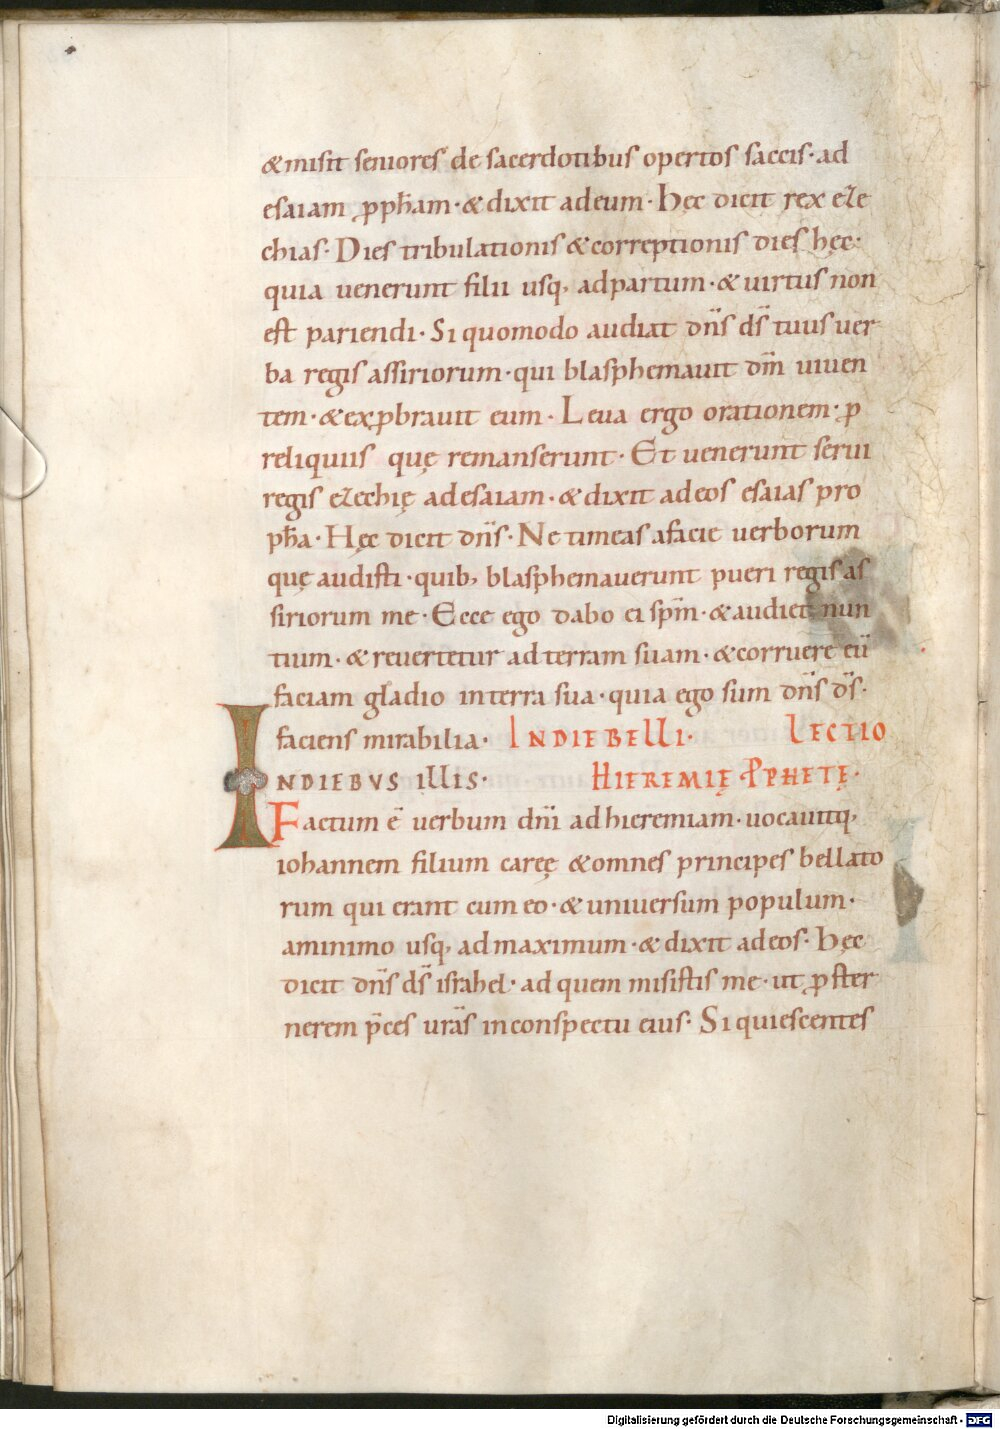 & misit seniores de sacerdotibus opertos saccis· ad
esaiam ꝓph̄am· & dixit ad eum· Hęc dicit rex eze
chias· Dies tribulationis & correptionis dies hęc·
quia uenerunt filii usq, ad partum· & uirtus non
est pariendi· Si quomodo audiat dn̄s ds̄ tuus uer
ba regis assiriorum· qui blasphemauit dm̄ uiuen
tem· & exꝓbrauit eum· Leua ergo orationem· ꝓ
reliquiis quę remanserunt· Et uenerunt serui
regis ezechię ad esaiam· & dixit ad eos esaias pro
ph̄a· Hęc dicit dn̄s· Ne timeas a facie uerborum
quę audisti· quib, blasphemauerunt pueri regis as
siriorum me· Ecce ego dabo ei sp̄m· & audiet nun
tium· & reuertetur ad terram suam· & corruere eū
faciam gladio in terra sua· quia ego sum dn̄s ds̄·
faciens mirabilia· IN DIE BELLI· LECTIO
INDIEBVS ILLIS· HIEREMIĘ ꝒPHETĘ·
Factum ē uerbum dn̄i ad hieremiam· uocauitq,
iohannem filium careę & omnes principes bellato
rum qui erant cum eo· & uniuersum populum·
a minimo usq, ad maximum· & dixit ad eos· Hęc
dicit dn̄s ds̄ israhel· ad quem misistis me· ut ꝓster
nerem p̄ces ur̄as in conspectu eius· Si quiescentes
Digitalisierung gefördert durch die Deutsche Forschungsgemeinschaft - DFG